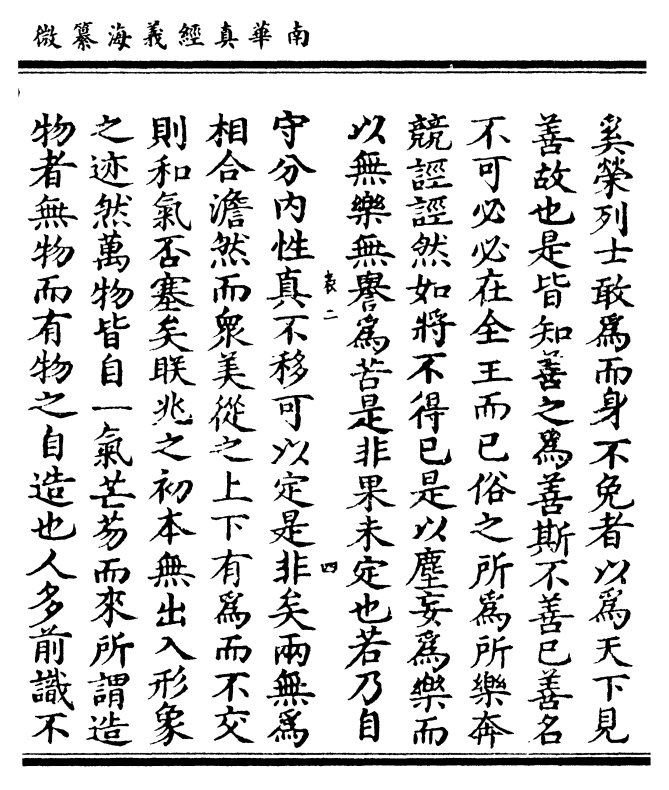 南華真經義海纂微
奚榮列士敢為而身不免者以為天下見
善故也是皆知善之為善斯不善已善名
不可必必在全王而已俗之所為所樂奔
競誙誙然如將不得已是以塵妄為樂而
以無樂無譽為苦是非果未定也若乃自
袁二
四
守分內性真不移可以定是非矣兩無為
相合澹然而眾美從之上下有為而不交
則和氣否塞矣眹兆之初本無出入形象
之迹然萬物皆自一氣芒芴而來所謂造
物者無物而有物之自造也人多前識不